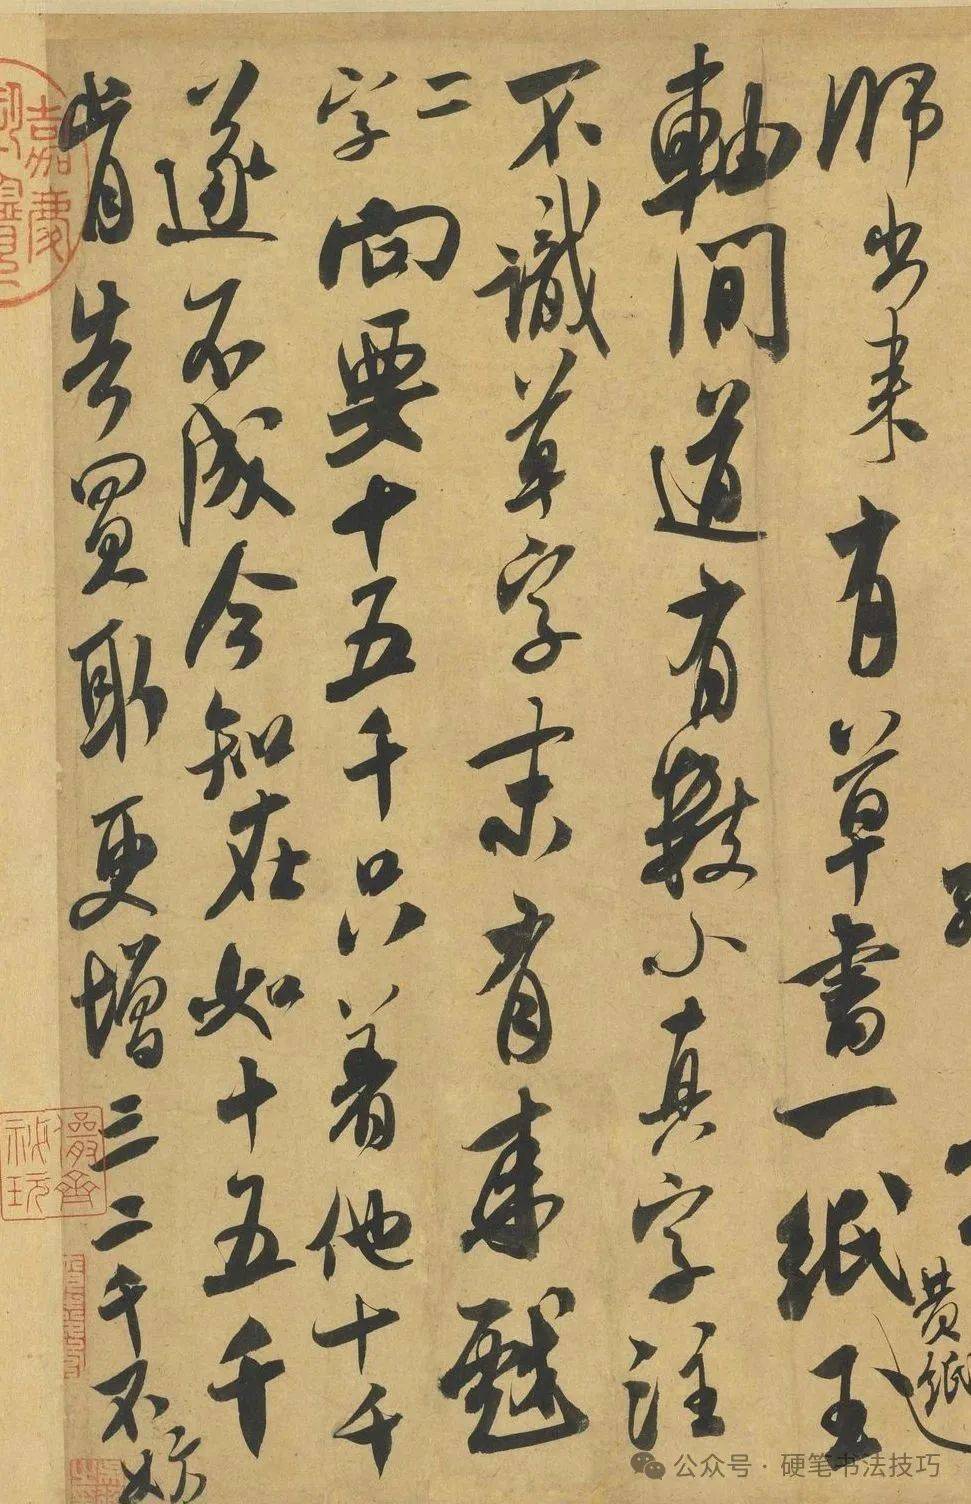 師出来有草書一紙玉
軸間道有數小真字注
不識草字末有来戲
二字向要十五千只着他十千
遂不成今知在如十五千
肯告買取更增三二千不妨
費紙
嘉慶
祕玩
公众号 · 硬笔书法技巧